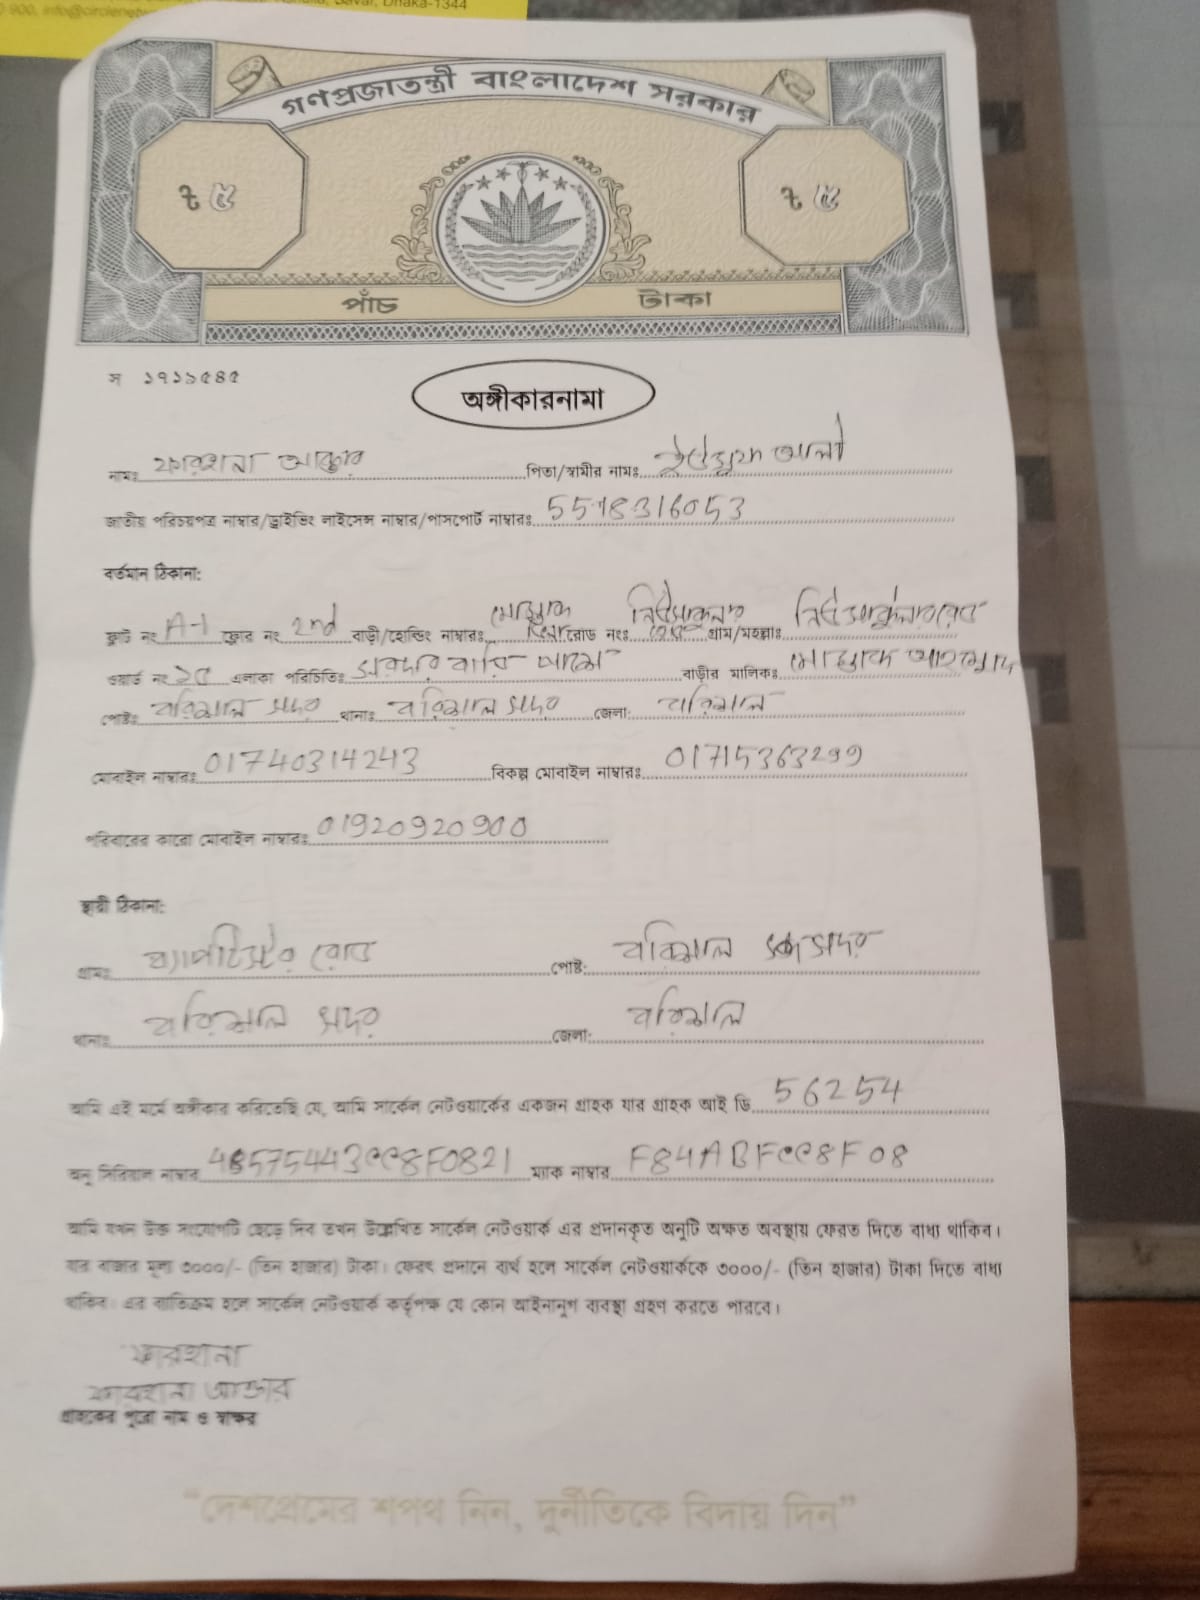 900, info@circlene
Savar, Dhaka-1344
গণপ্রজাতন্ত্রী বাংলাদেশ সরকার
৳ ৫ ৳ ৫
পাঁচ টাকা
স ১৭১১৫৪৫
অঙ্গীকারনামা
নামঃ ফারহানা আক্তার পিতা/স্বামীর নামঃ ইউসুফ আলী
জাতীয় পরিচয়পত্র নাম্বার/ড্রাইভিং লাইসেন্স নাম্বার/পাসপোর্ট নাম্বারঃ 5518316053
বর্তমান ঠিকানা:
ফ্লাট নং A-1 ফ্লোর নং 2nd বাড়ী/হোল্ডিং নাম্বারঃ রোড নংঃ নিউসার্কুলার রোড গ্রাম/মহল্লাঃ নিউসার্কুলাররোড
ওয়ার্ড নং ১৫ এলাকা পরিচিতিঃ সরদার বাড়ি পাশে বাড়ীর মালিকঃ আহম্মেদ
পোষ্টঃ বরিশাল সদর থানাঃ বরিশাল সদর জেলা: বরিশাল
মোবাইল নাম্বারঃ 01740314243 বিকল্প মোবাইল নাম্বারঃ 01715363299
পরিবারের কারো মোবাইল নাম্বারঃ 01920920900
স্থায়ী ঠিকানা:
গ্রামঃ ব্যাপটিস্ট রোড পোষ্ট: বরিশাল সদর
থানাঃ বরিশাল সদর জেলা: বরিশাল
আমি এই মর্মে অঙ্গীকার করিতেছি যে, আমি সার্কেল নেটওয়ার্কের একজন গ্রাহক যার গ্রাহক আই ডি 56254
অনু সিরিয়াল নাম্বার 48575443CC8F0821 ম্যাক নাম্বার F84ABFCC8F08
আমি যখন উক্ত সংযোগটি ছেড়ে দিব তখন উল্লেখিত সার্কেল নেটওয়ার্ক এর প্রদানকৃত অনুটি অক্ষত অবস্থায় ফেরত দিতে বাধ্য থাকিব।
যার বাজার মূল্য ৩০০০/- (তিন হাজার) টাকা। ফেরৎ প্রদানে ব্যর্থ হলে সার্কেল নেটওয়ার্ককে ৩০০০/- (তিন হাজার) টাকা দিতে বাধ্য
থাকিব। এর ব্যতিক্রম হলে সার্কেল নেটওয়ার্ক কর্তৃপক্ষ যে কোন আইনানুগ ব্যবস্থা গ্রহণ করতে পারবে।
ফারহানা
ফারহানা আক্তার
গ্রাহকের পুরো নাম ও স্বাক্ষর
“দেশপ্রেমের শপথ নিন, দুর্নীতিকে বিদায় দিন”